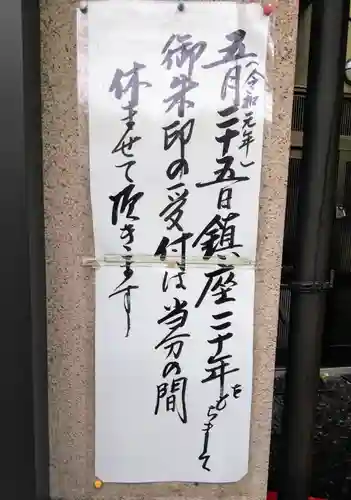 五月(令和元年)二十五日鎮座二十年をもちまして
御朱印の受付は当分の間
休ませて頂きます